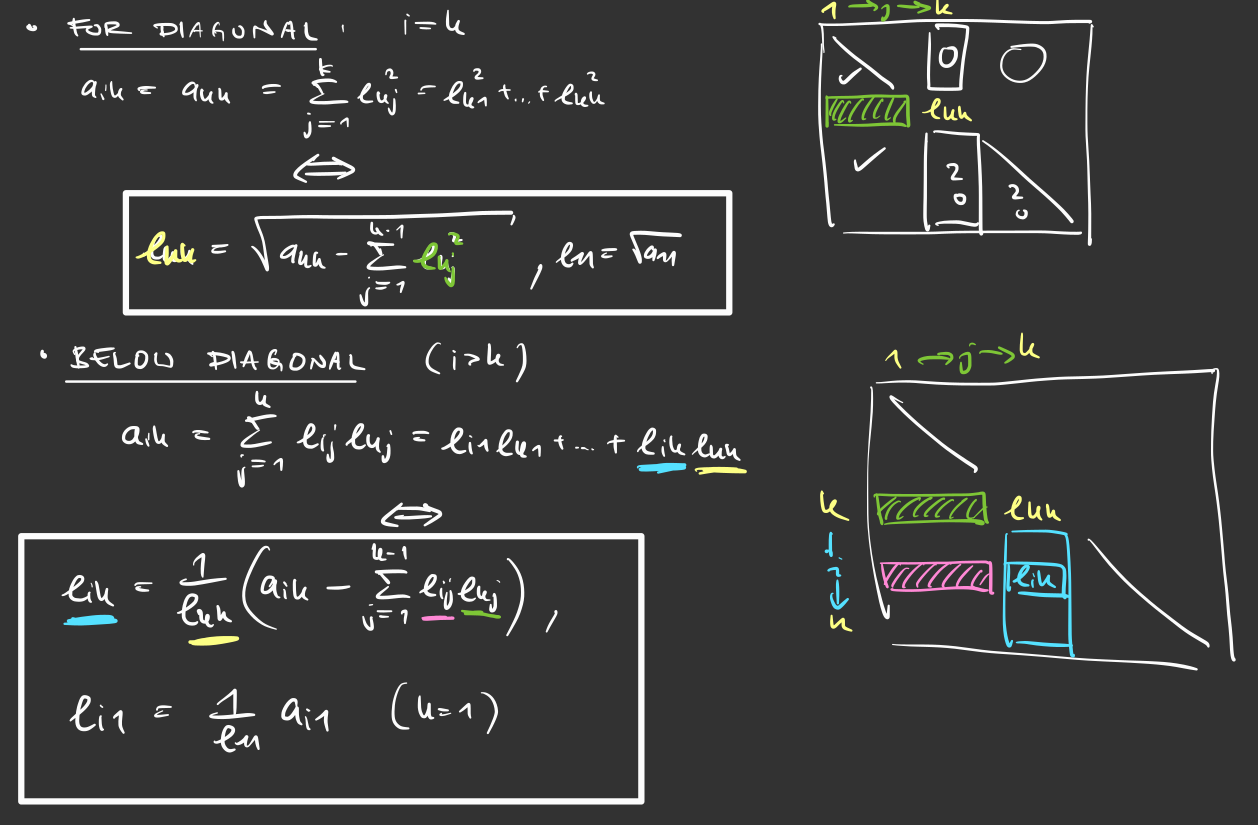 • FOR DIAGONAL : i = k
aik = akk = ∑_{j=1}^{k} lkj² = lk1² + ... + lkk²
⟺
lkk = √(akk - ∑_{j=1}^{k-1} lkj²) , l11 = √a11
• BELOW DIAGONAL (i>k)
aik = ∑_{j=1}^{k} lij lkj = li1 lk1 + ... + lik lkk
⟺
lik = 1/lkk (aik - ∑_{j=1}^{k-1} lij lkj) ,
li1 = 1/l11 ai1 (k=1)
1 → j → k
0 O
lkk
✓
✓
? 0 ? 0
1 → j → k
k lkk
i lik
n